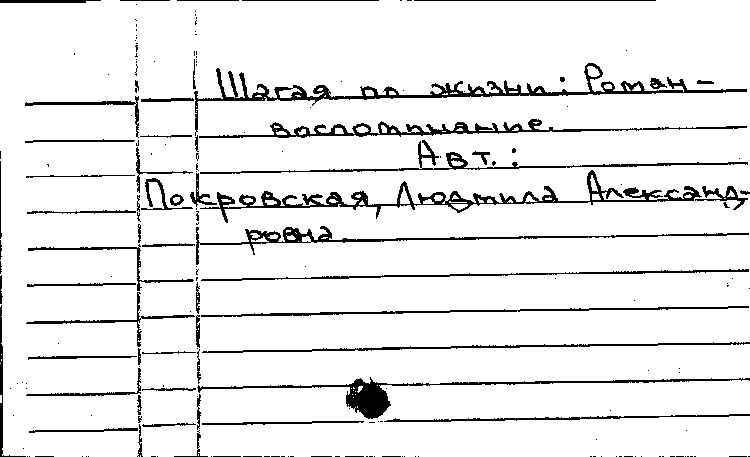 Шагая по жизни: Роман-
воспоминание.
Авт.:
Покровская, Людмила Александ-
ровна